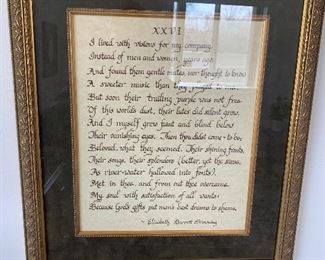 XXVI
I lived with visions for my company,
Instead of men and women, years ago,
And found them gentle mates, nor thought to know
A sweeter music than they played to me.
But soon their trailing purple was not free
Of this worlds dust, their lutes did silent grow,
And I myself grew faint and blind below
Their vanishing eyes. Then thou didst come - to be,
Beloved, what they seemed. Their shining fronts,
Their songs, their splendors (better, yet the same,
As river-water hallowed into fonts),
Met in thee, and from out thee overcame
My soul with satisfaction of all wants:
Because God's gifts put man's best dreams to shame.
~ Elizabeth Barrett Browning